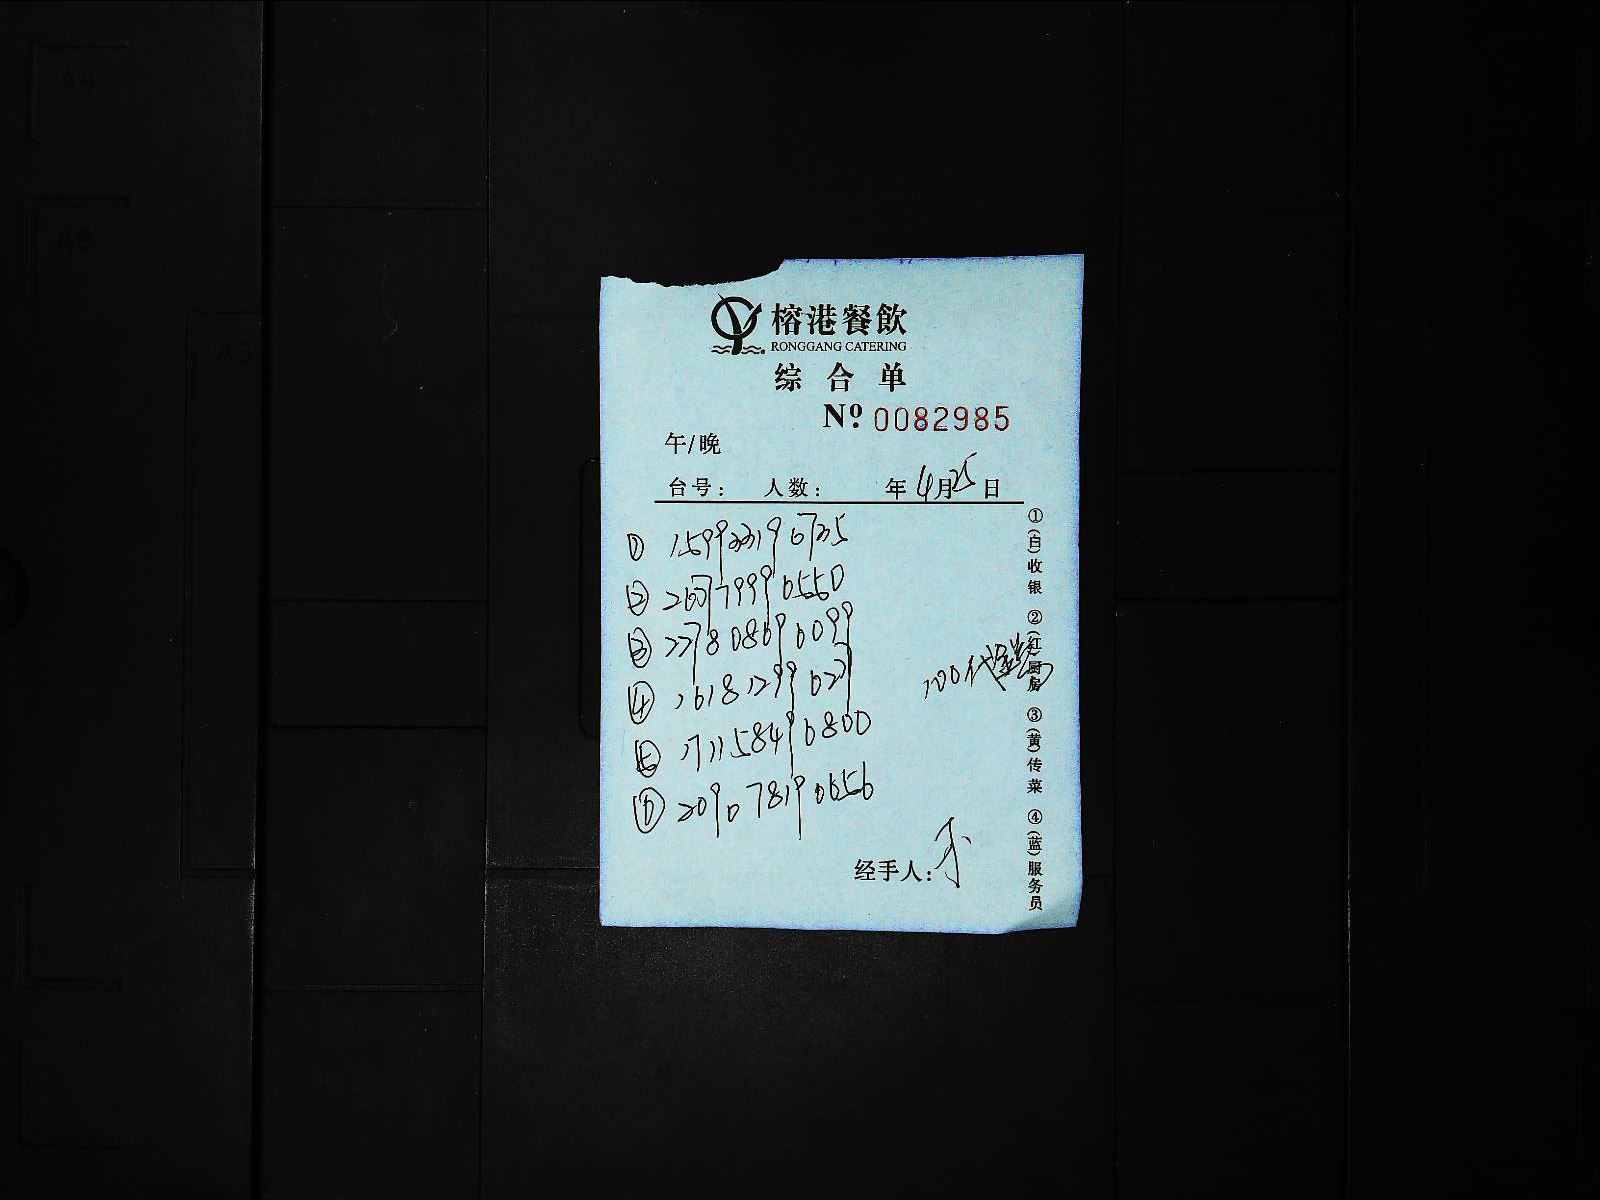 榕港餐飲
RONGGANG CATERING
综合单
Nº 0082985
午/晚
台号： 人数： 年4月25日
① 159933196735
② 263779990550
③ 227808696099
④ 16181299027
⑤ 171158490800
⑥ 209078190656
100代
经手人：
①(白)收银 ②(红)厨房 ③(黄)传菜 ④(蓝)服务员
A4
A5
A6